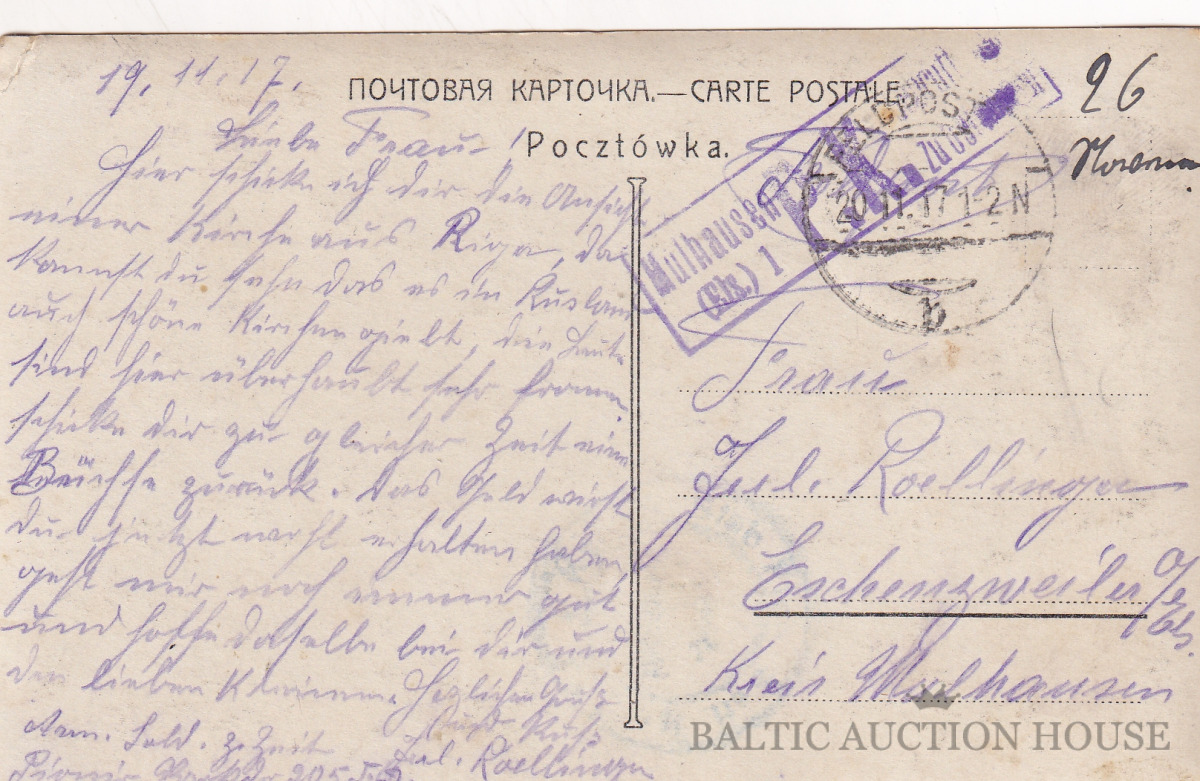 19.11.17.
ПОЧТОВАЯ КАРТОЧКА.—CARTE POSTALE.
Pocztówka.
Liebe Frau!
Hier schicke ich dir die Ansicht
einer Kirche aus Riga, da
kannst du sehn das es in Rusland
auch schöne Kirchen giebt, die Leute
sind hier überhaubt sehr fromm,
schicke dir zu gleicher Zeit eine
Büchse zurück. Das Geld wirst
du jetzt wohl erhalten haben,
geht mir noch immer gut
und hoffe daselbe bei dir und
den lieben Kleinen. Herzlichen Gruß
und Kuß
Jul. Roellinger
Arm. Sold. z. Zeit
26
FELDPOST
20.11.17 1-2 N
b
Mülhausen
(Els.) 1
Zu
Frau
Jul. Roellinger
Eschenzweiler O/Els.
Kreis Mülhausen
BALTIC AUCTION HOUSE